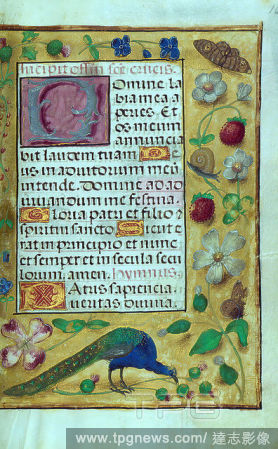 Incipit offm scē crucis.
Domine la
bia mea a
peries. Et
os meum
annuncia
bit laudem tuam. De
us in adiutorium meū
intende. Domine ad ad
iuuandum me festina.
Gloria patri et filio ⁊
spiritui sancto. Sicut e
rat in principio et nunc
et semper et in secula secu
lorum. amen. hymnus,
Patris sapiencia.
ueritas diuina.
TPG
www.tpgnews.com/ 達志影像